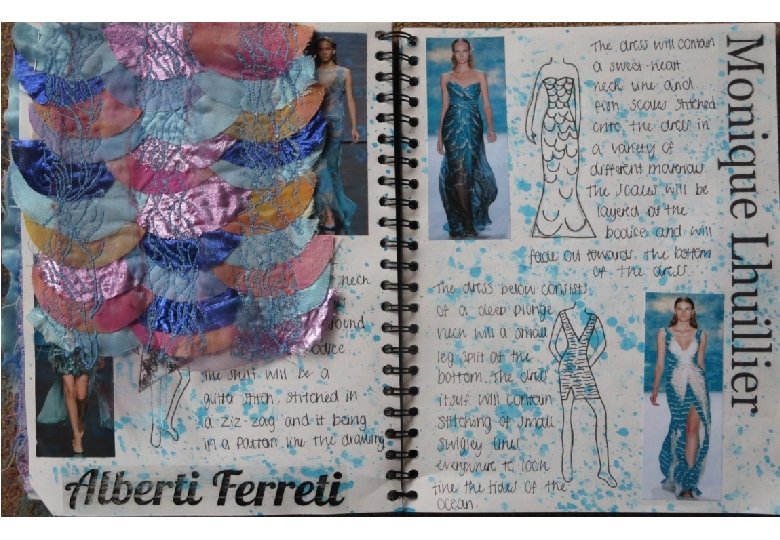 neck
round
bodice
The skirt will be a
stitch, stitched in
a Ziz-zag and it being
in a pattern like the drawing
Alberti Ferreti
The dress will contain
a sweet-heart
neck line and
fish scales stitched
onto the dress in
a variety of
different
The scales will be
layered at the
bodice and will
fade out towards the bottom
of the dress.
Monique Lhuillier
The dress below consists
of a deep plonge
neck will a small
leg split at the
bottom. The dress
itself will contain
stitching of small
lines
everywhere to look
like the tides of the
ocean.